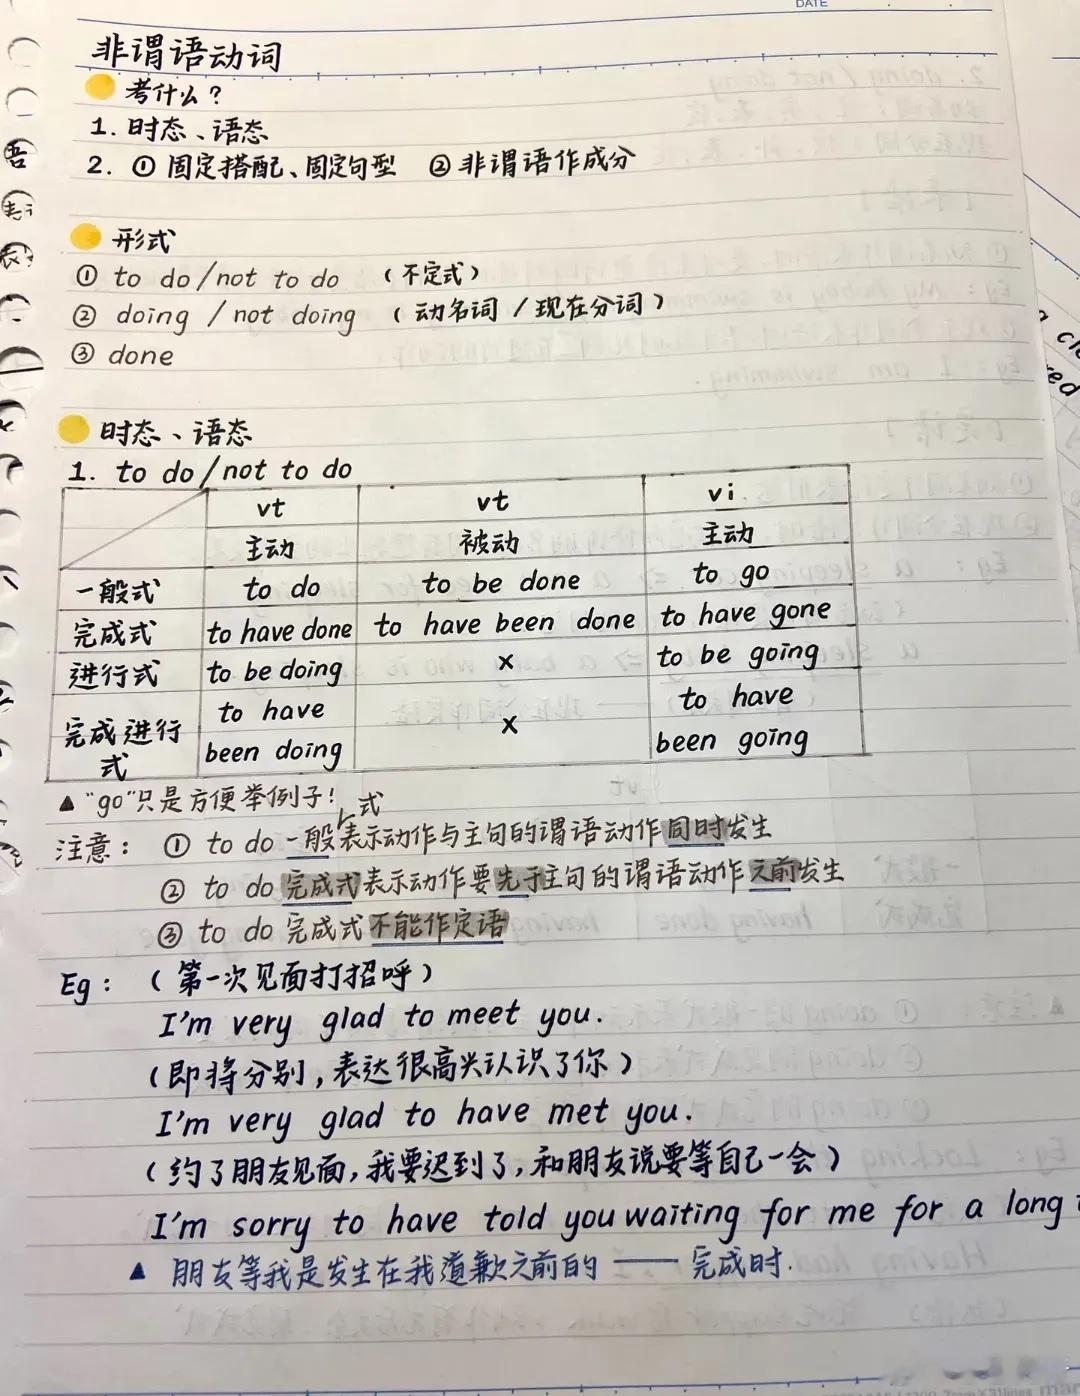 DATE
非谓语动词
考什么？
1. 时态、语态
2. ① 固定搭配、固定句型 ② 非谓语作成分
形式
① to do / not to do （不定式）
② doing / not doing （动名词 / 现在分词）
③ done
时态、语态
1. to do / not to do
vt vt vi
主动 被动 主动
一般式 to do to be done to go
完成式 to have done to have been done to have gone
进行式 to be doing × to be going
完成进行式 to have been doing × to have been going
▲ “go”只是方便举例子！
注意： ① to do 一般式表示动作与主句的谓语动作同时发生
② to do 完成式表示动作要先于主句的谓语动作之前发生
③ to do 完成式不能作定语
Eg：（第一次见面打招呼）
I'm very glad to meet you.
（即将分别，表达很高兴认识了你）
I'm very glad to have met you.
（约了朋友见面，我要迟到了，和朋友说要等自己一会）
I'm sorry to have told you waiting for me for a long
▲ 朋友等我是发生在我道歉之前的 —— 完成时.